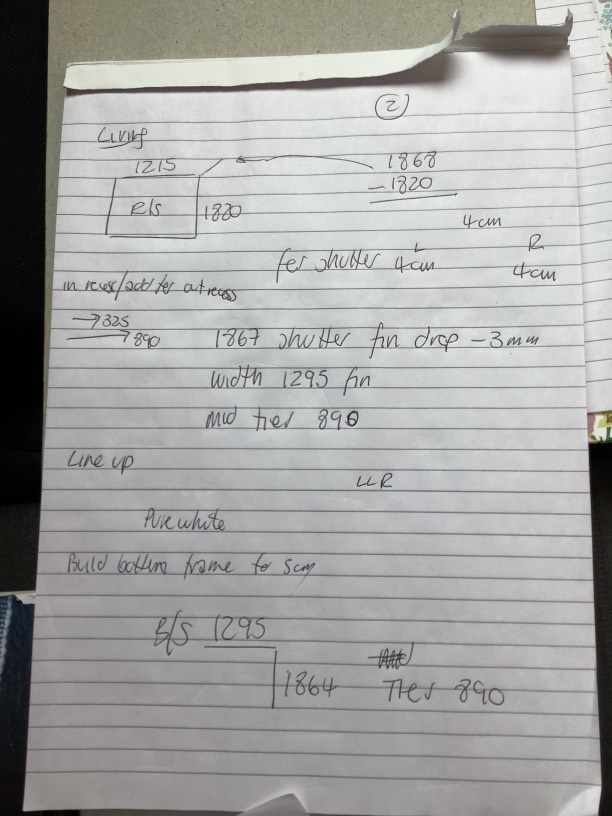 2
Living
1215
R/s 1820
1868
- 1820
4cm
L R
for shutter 4cm 4cm
in recess/add for out recess
→325
→890
1867 shutter fin drop - 3mm
width 1295 fin
mid tier 890
Line up
LLR
Pure white
Build bottom frame to 5cm
B/S 1295
1864 Tier 890